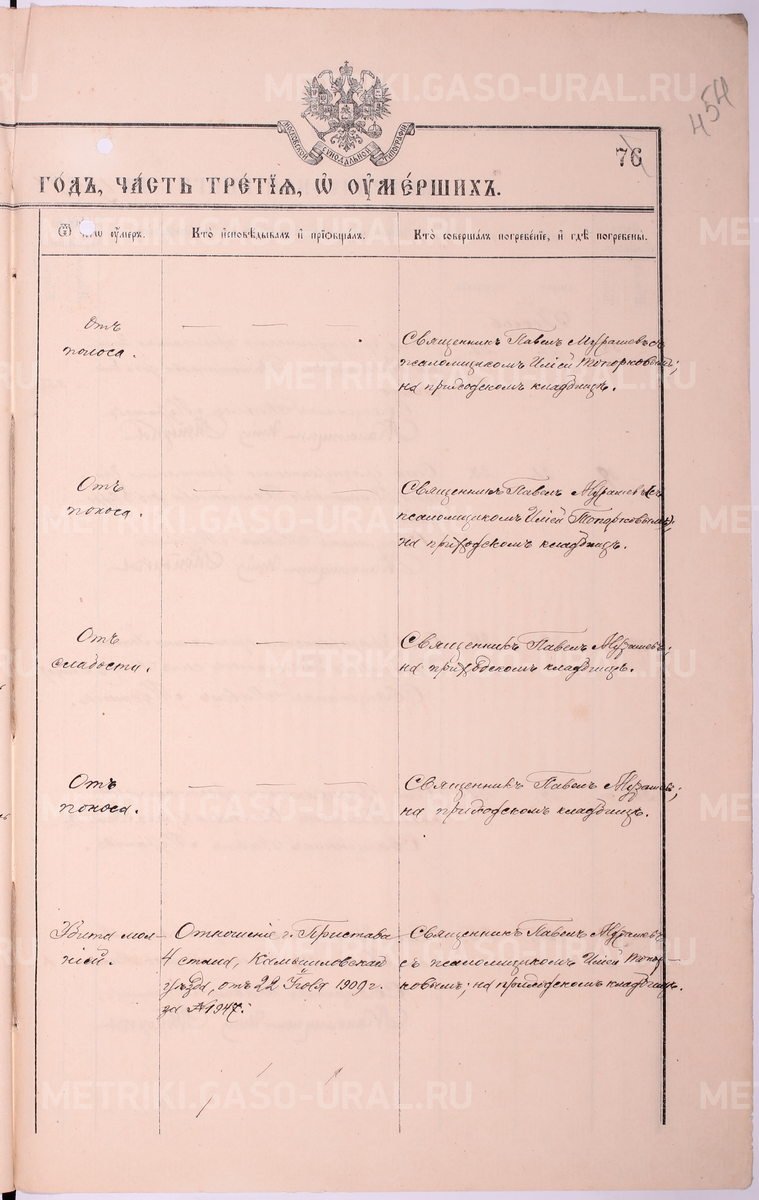 454
МОСКОВСКОЙ СУНОДАЛЬНОЙ ТИПОГРАФІИ
76
ГОДЪ, ЧАСТЬ ТРЕТІЯ, Ѡ ОУМЕРШИХЪ.
Ѿ чегѡ оумеръ.
Кто исповѣдывалъ и пріобщалъ.
Кто совершалъ погребеніе, и гдѣ погребены.
Отъ
поноса.
Священникъ Павелъ Мурашевъ съ
псаломщикомъ Иліей Топорковымъ;
на приходскомъ кладбищѣ.
Отъ
поноса.
Священникъ Павелъ Мурашевъ съ
псаломщикомъ Иліей Топорковымъ;
на приходскомъ кладбищѣ.
Отъ
слабости.
Священникъ Павелъ Мурашевъ;
на приходскомъ кладбищѣ.
Отъ
поноса.
Священникъ Павелъ Мурашевъ;
на приходскомъ кладбищѣ.
Убита мол-
ніей.
Отношеніе г. Пристава
4 стана, Камышловскаго
уѣзда, отъ 22 Іюля 1909 г.
за № 1947.
Священникъ Павелъ Мурашевъ
съ псаломщикомъ Иліей Топор-
ковымъ; на приходскомъ кладбищѣ.
METRIKI.GASO-URAL.RU